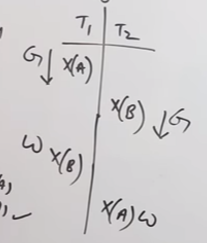 T₁ T₂
G↓ X(A)
X(B) ↓G
W X(B)
X(A) W